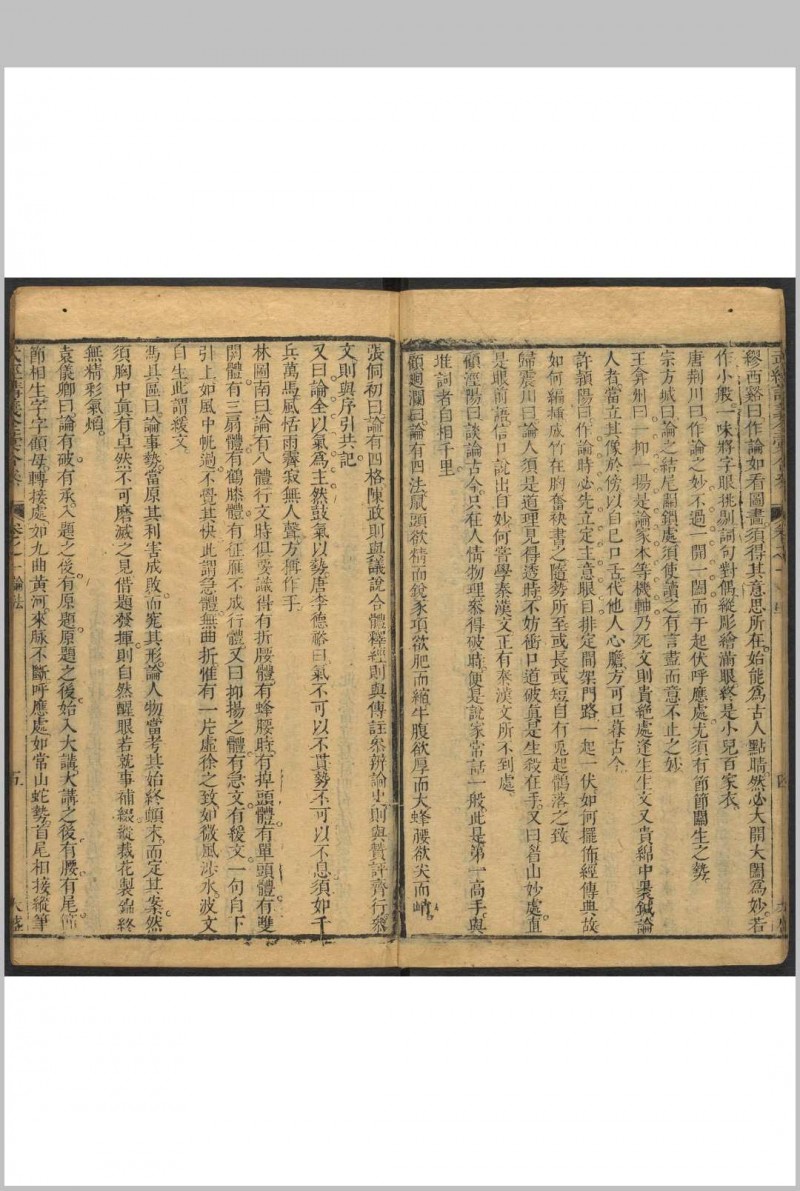 繆西谿曰作論如看圖畫須得其意思所在始能爲古人點睛然必大開大闔爲妙若
作小股一味將字眼挑剔詞句對偶縱彫繪滿眼終是小兒百家衣
唐荆川曰作論之妙不過一開一闔而于起伏呼應處尤須有節節關生之勢
宗方城曰論之結尾關鎖處須使讀之有言盡而意不止之妙
王弇州曰一抑一揚是論家本等機軸乃死文則貴絕處逢生生文又貴綿中裹鍼論
人者當立其像於傍以自已口舌代他人心膽方可旦暮古今
許潁陽曰作論時必先立定主意眼目排定間架門路一起一伏如何擺佈經傳典故
如何編插成竹在胸奮袂書之隨勢所至或長或短自有兎起鶻落之致
歸震川曰論人須是道理見得透時不妨衝口道破眞是生殺在手又曰眉山妙處直
是眼前語信口說出自妙何嘗學秦漢文正有秦漢文所不到處
顧涇陽曰談論古今只在人情物理叅得破時便是說家常話一般此是第一高手與
堆詞者自相千里
顧廻瀾曰論有四法鼠頭欲精而銳豕項欲肥而縮牛腹欲厚而大蜂腰欲尖而峭
張侗初曰論有四格陳政則與議說合體釋經則與傳註叅辨論史則與贊評齊行叅
文則與序引共記
又曰論全以氣爲主然鼓氣以勢唐李德裕曰氣不可以不貫勢不可以不息須如千
兵萬馬風恬雨霽寂無人聲方稱作手
林圖南曰論有八體行文時俱要識得有折腰體有蜂腰體有掉頭體有單頭體有雙
關體有三扇體有鶴膝體有征雁不成行體又曰抑揚之體有急文有緩文一句自下
引上如風中帆過不覺其快此謂急體無曲折惟有一片虛徐之致如微風涉水波文
自生此謂緩文
馮具區曰論事勢當原其利害成敗而宪其形論人物當考其始終顛末而定其案然
須胸中眞有卓然不可磨滅之見借題發揮則自然醒眼若就事補綴縱裁花製錦終
無精彩氣焰
袁儀卿曰論有破有承入題之後有原題原題之後始入大講大講之後有腰有尾
節相生字字顧母轉接處如九曲黃河來脉不斷呼應處如常山蛇勢首尾相接縱筆
卷之一 論法 五